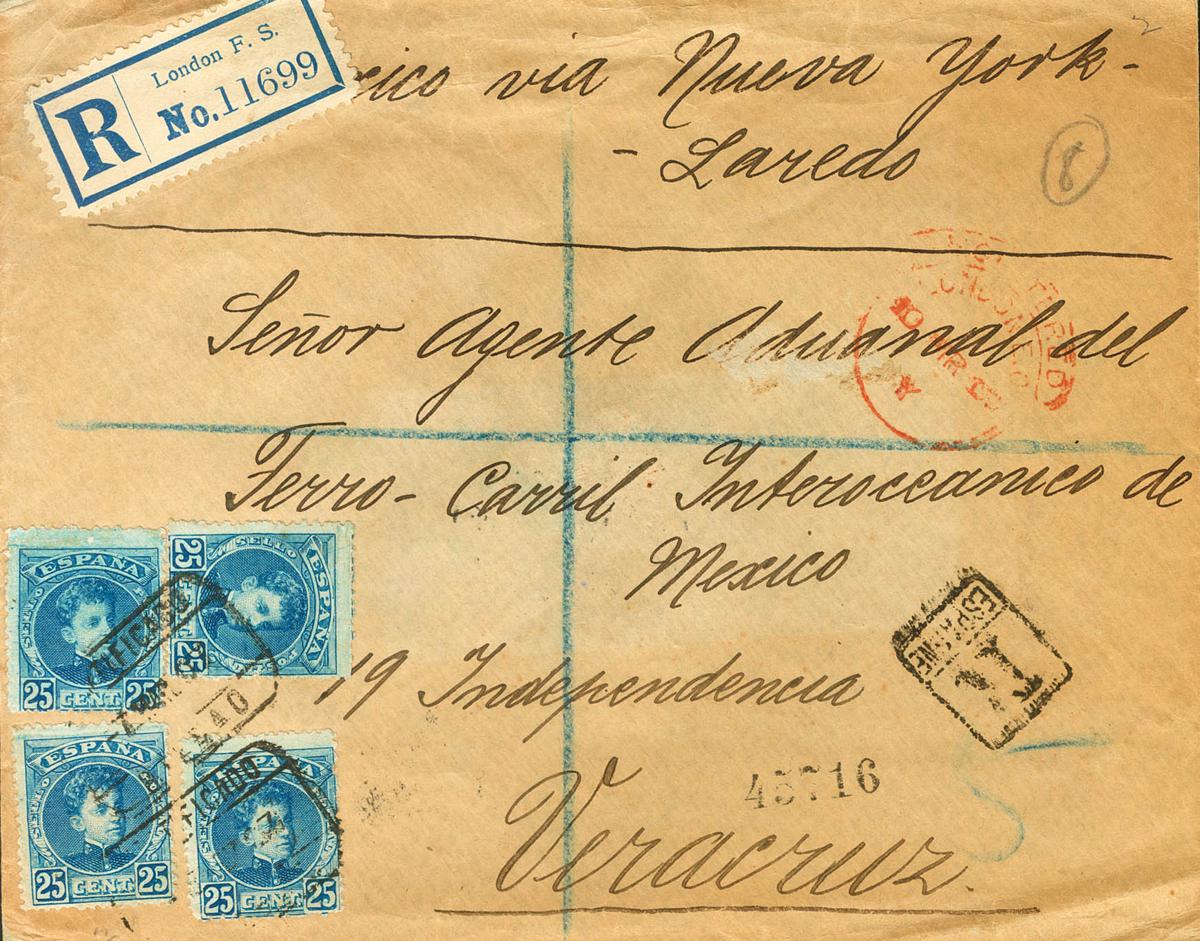 R
London F. S.
No. 11699
xico via Nueva York -
- Laredo
8
Señor Agente Aduanal del
Ferro-Carril Interoceanico de
Mexico
19 Independencia
Veracruz.
45716
REGISTERED
LONDON
10 MR
ESPAGNE
ESPAÑA
SELLO
25 CENT. 25
ESPAÑA
SELLO
25
25
ESPAÑA
SELLO
25 CENT. 25
ESPAÑA
25 CENT. 25
BILBAO